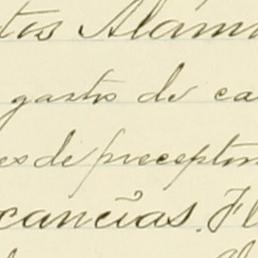 tos Alam
gasto de ca
es de preceptor
cancías. Fl